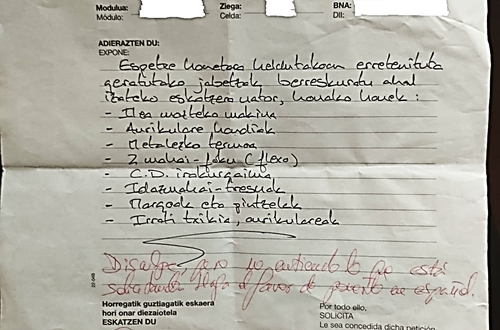 Modulua:
Módulo:
Ziega:
Celda:
BNA:
DII:
ADIERAZTEN DU:
EXPONE:
Espetxe honetara heldutakoan erretenituta
geratutako jabetzak berreskuratu ahal
izateko eskatzen nator, honako hauek:
- Ilea mozteko makina
- Aurikulare handiak
- Metalezko termoa
- 2 mahai-foku (flexo)
- C.D. irakurgailua
- Idazmahai-tresnak
- Margoak eta pintzelak
- Irrati txikia, aurikulareak
Disculpe, pero no entiendo lo que está
solicitando. Haga el favor de ponerlo en español.
Horregatik guztiagatik eskaera
hori onar diezaiotela
ESKATZEN DU
Por todo ello,
SOLICITA
Le sea concedida dicha petición